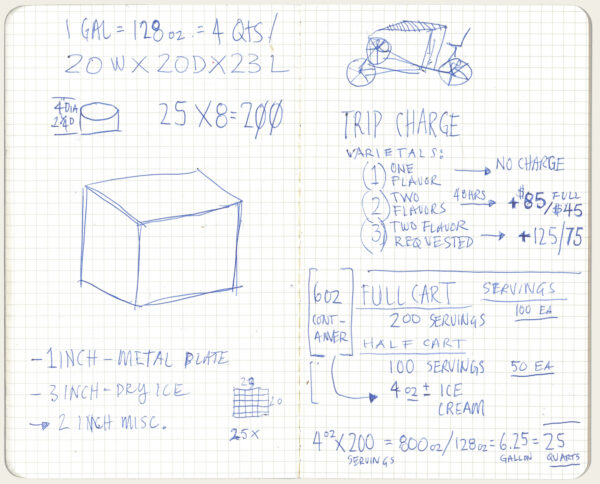 1 GAL = 128 oz. = 4 QTS/
20 W X 20D X 23 L
4 DIA
2.4D
25 X 8 = 200
- 1 INCH - METAL PLATE
- 3 INCH - DRY ICE
→ 2 INCH MISC.
20
20
25X
TRIP CHARGE
VARIETALS:
(1) ONE FLAVOR → NO CHARGE
(2) TWO FLAVORS 48HRS → +$85/$45 FULL
(3) TWO FLAVOR REQUESTED → +125/75
6oz CONT-AINVER
FULL CART SERVINGS
200 SERVINGS 100 EA
HALF CART
100 SERVINGS 50 EA
4 oz ± ICE CREAM
4oz X 200 = 800oz/128oz = 6.25 = 25
SERVINGS GALLON QUARTS